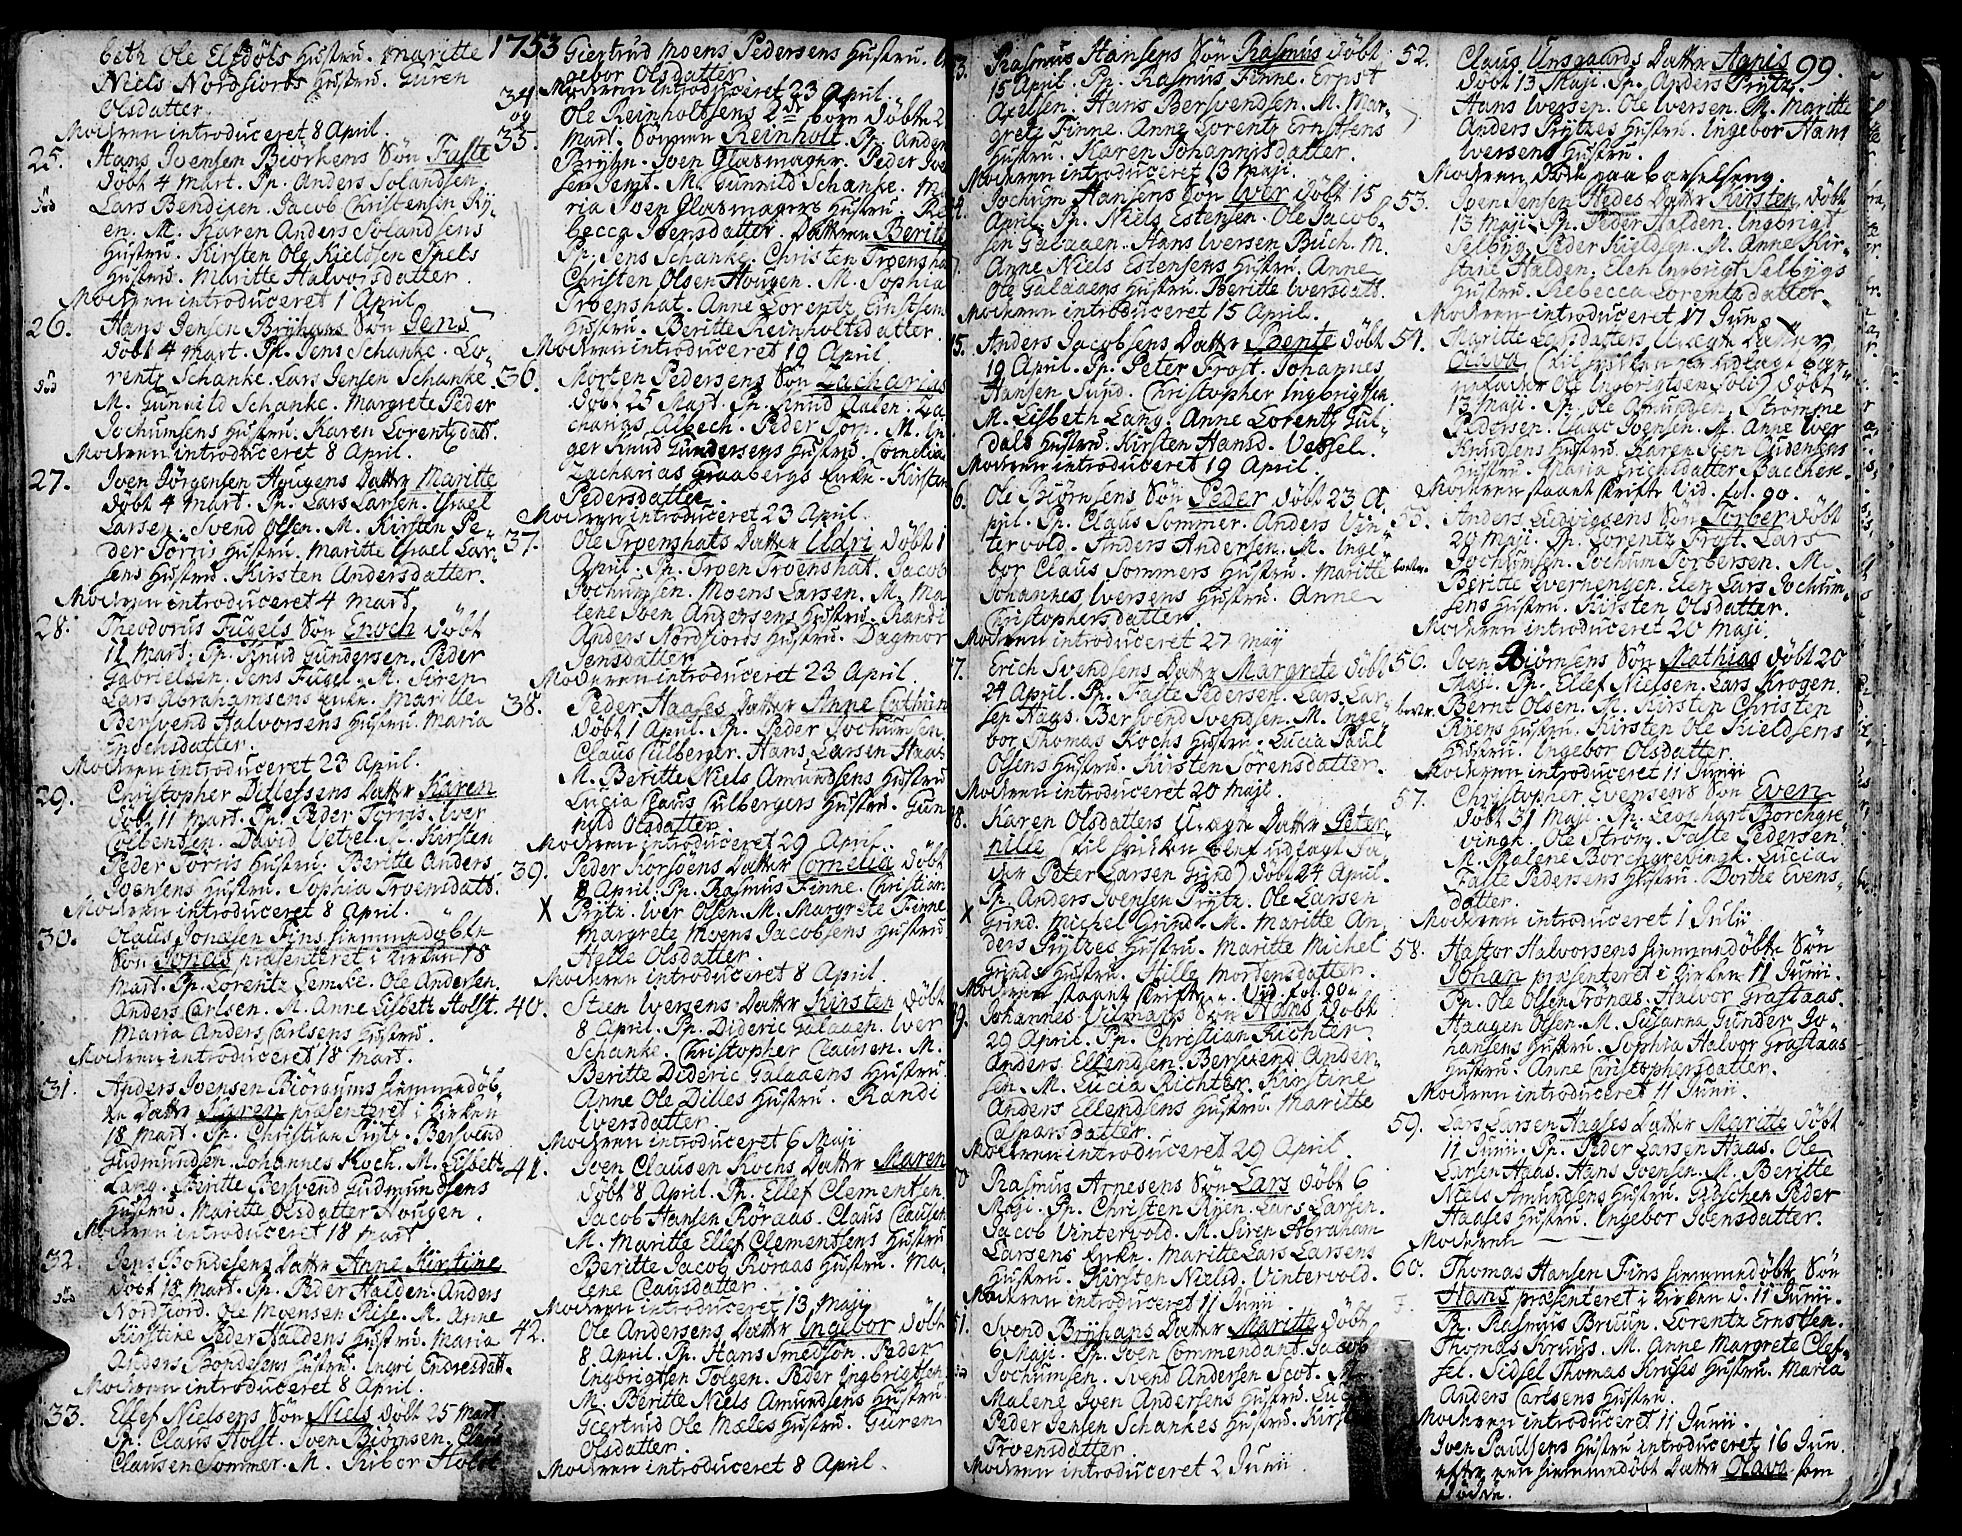 beth Ole Elfdöls Hustru. Maritte
Niels Nordfiords Hustru. Guren
Olsdatter.
Modren introduceret 8 April.
25. Hans Joensen Biörkens Sön Faste
döbt 4 Mart. Pp. Anders Solandsen
död Lars Bendixen. Jacob Christensen Ry-
en. M. Karen Anders Solandsens
Hustru. Kirsten Ole Kieldsen Spels
Hustru. Maritte Halvorsdatter.
Modren introduceret 1 April.
26. Hans Jensen Bryhans Sön Jens
döbt 4 Mart. Pp. Jens Schanke. Lo-
död rentz Schanke. Lars Jensen Schanke
M. Gunnild Schanke. Margrete Peder
Jochumsens Hustru. Karen Lorentzdatt.
Modren introduceret 8 April.
27. Iven Jörgensen Hougens Datter Maritte
döbt 4 Mart. Pp. Lars Larsen. Israel
Larsen. Svend Olsen. M. Kirsten Pe-
der Torris Hustru. Maritte Israel Lar-
sens Hustru. Kirsten Andersdatter.
Modren introduceret 4 Mart.
28. Theodorus Fugels Sön Enoch döbt
11 Mart. Pp. Knud Gundersen. Peder
Gabrielsen. Jens Fugel. M. Siren
Lars Abrahamsens Enke. Maritte
Bersvend Halvorsens Hustru. Maria
Enochsdatter.
Modren introduceret 23 April.
29. Christopher Detlefsens Datter Karen
döbt 11 Mart. Pp. Peder Torris. Iver
Colbentsen. David Vetzel. M. Kirsten
Peder Torris Hustru. Beritte Anders
Joensens Hustru. Sophia Troensdatt.
Modren introduceret 8 April.
30. Olaus Jonæsen Fins hiemmedöbte
Sön Jonas præsenteret i Kirken 18
Mart. Pp. Lorentz Lemke. Ole Andersen.
Anders Carlsen. M. Anne Lisbeth Holst.
Maria Anders Carlsens Hustru.
Modren introduceret 18 Mart.
31. Anders Joensen Biörgums hiemmedöb-
te Datter Karen præsenteret i Kirken
18 Mart. Pp. Christian Prytz. Bersvend
Gudmundsen. Johannes Koch. M. Lisbeth
Lang. Beritte Bersvend Gudmundsens
Hustru. Maritte Olsdatter Hougen.
Modren introduceret 18 Mart
32. Jens Bondesens Datter Anne Kirstine
döbt 18 Mart. Pp. Peder Halden. Anders
död Nordfiord. Ole Moensen Riise. M. Anne
Kirstine Peder Haldens Hustru. Maria
Anders Bondesens Hustru. Ingri Endresdatt.
Modren introduceret 8 April.
33. Ellef Nielsens Sön Niels döbt 25 Mart.
Pp. Claus Holst. Iven Biörnsen. Claus
Clausen Sommer. M. Tibor Holst
1753 Giertrud Moens Pedersens Hustru. In
gebor Olsdatter.
Modren introduceret 23 April.
34 og 35. Ole Reinholtsens 2de börn döbte 2
Mart. Sönnen Reinholt. Pp. Anders
Bryhn. Iven Glasmager. Peder Ive
sen Semt. M. Gunnild Schanke. Ma
ria Iven Glasmagers Hustru. Re
becca Joensdatter. Datteren Beritte
Pp. Jens Schanke. Christen Troenshat
Christen Olsen Hougen. M. Sophia
Troenshat. Anne Lorentz Ernstsens
Hustru. Beritte Reinholtsdatter.
Modren introduceret 19 April.
36. Morten Pedersens Sön Zacharias
döbt 25 Mart. Pp. Knud Aalen. Za
charias Albech. Peder Torp. M. In
ger Knud Gundersens Hustru. Cornelia
Zacharias Graabergs Enke. Kirsten
Pedersdatter.
Modren introduceret 23 April.
37. Ole Troenshats Datter Eldri döbt 1
April. Pp. Troen Troenshat. Jacob
Jochumsen. Moens Larsen. M. Ma
lene Iven Andersens Hustru. Randi
Anders Nordfiords Hustru. Dagmor
Jensdatter.
Modren introduceret 23 April.
38. Peder Haases Datter Anne Cathrin
döbt 1 April. Pp. Peder Jochumsen.
Claus Culberger. Hans Larsen Haas
M. Beritte Niels Amundsens Hustru
Lucia Claus Culbergers Hustru. Gun
nild Olsdatter.
Modren introduceret 29 April.
39. Peder Korsöens Datter Cornelia döbt
8 April. Pp. Rasmus Finne. Christian
X Prytz. Iver Olsen. M. Margrete Finne
Margrete Moens Jacobsens Hustru
Helle Olsdatter.
Modren introduceret 8 April.
40. Steen Iversens Datter Kirsten döbt
8 April. Pp. Dideric Galaaen. Iver
Schanke. Christopher Clausen. M.
Beritte Dideric Galaaens Hustru
Anne Ole Dilles Hustru. Randi
Iversdatter.
Modren introduceret 6 Maji
41. Iven Clausen Kochs Datter Maren
döbt 8 April. Pp. Ellef Clementsen.
Jacob Hansen Röraas. Claus Clausen
M. Maritte Ellef Clementsens Hustru
Beritte Jacob Röraas Hustru. Ma-
lene Clausdatter.
Modren introduceret 13 Maji
42. Ole Andersens Datter Ingebor döbt
8 April. Pp. Hans Smedson. Peder
Ingbrigtsen Tolgen. Peder Ingbrigtsen
M. Beritte Niels Amundsens Hustru
Geertrud Ole Mæles Hustru. Guren
Olsdatter.
Modren introduceret 8 April.
3. Rasmus Hansens Sön Rasmus döbt
15 April. Pp. Rasmus Finne. Ernst
Axelsen. Hans Bersvendsen. M. Mar-
grete Finne. Anne Lorentz Ernstsens
Hustru. Karen Johannisdatter.
Modren introduceret 13 Maji.
4. Jochum Hansens Sön Iver döbt 15
April. Pp. Niels Estensen. Ole Jacob-
sen Galaaen. Hans Iversen Buch. M.
Anne Niels Estensens Hustru. Anne
Ole Galaaens Hustru. Beritte Iversdatt.
Modren introduceret 15 April.
5. Anders Jacobsens Datter Bente döbt
19 April. Pp. Peter Frost. Johannes
Hansen Sund. Christopher Ingbrigtsen
M. Lisbeth Lang. Anne Lorentz Gul-
dals Hustru. Kirsten Hansd. Vessel.
Modren introduceret 19 April.
6. Ole Biörnsens Sön Peder döbt 23 A-
pril. Pp. Claus Sommer. Anders Vin-
tervold. Anders Andersen. M. Inge-
bor Claus Sommers Hustru. Maritte
Johannes Iversens Hustru. Anne
Christophersdatter.
Modren introduceret 27 Maij
7. Erich Svendsens Datter Margrete döbt
24 April. Pp. Faste Pedersen. Lars Lar-
sen Haas. Bersvend Svendsen. M. Inge-
bor Thomas Kochs Hustru. Lucia Paul
Olsens Hustru. Kirsten Sörensdatter.
Modren introduceret 20 Maji.
8. Karen Olsdatters Uægte Datter Peter-
nille (til hvilken blef udlagt Fa-
der Peter Larsen Grind) döbt 24 April.
Pp. Anders Joensen Prytz. Ole Larsen
X Grind. Michel Grind. M. Maritte An-
ders Prytzes Hustru. Maritte Michel
Grinds Hustru. Hille Mortensdatter.
Modren staaet skrifte. Vid. fol. 90.
9. Johannes Viimans Sön Hans döbt
29 April. Pp. Christian Richter.
Anders Ellendsen. Bersvend Ander-
sen. M. Lucia Richter. Kirstine
Anders Ellendsens Hustru. Maritte
Caspersdatter.
Modren introduceret 29 April.
0. Rasmus Arnesens Sön Lars döbt 6
Maji. Pp. Christen Ryen. Lars Larsen.
Jacob Vintervold. M. Siren Abraham
Larsens Enke. Maritte Lars Larsens
Hustru. Kirsten Nielsd. Vintervold.
Modren introduceret 11 Junii.
51. Svend Bryhans Datter Maritte döbt
6 Maji. Pp. Iven Commendant. Jacob
Jochumsen. Svend Andersen Scot. M.
Malene Iven Andersens Hustru.
Peder Jensen Schankes Hustru.
Troensdatter.
Modren introduceret 2 Junii
99.
52. Claus Unsgaards Datter Agnis
döbt 13 Maji. Pp. Anders Prytz.
Hans Iversen. Ole Iversen. M. Maritte
Anders Prytzes Hustru. Ingebor Hans
Iversens Hustru.
Modren döde paa barselseng.
53. Iven Jensen Hedes Datter Kirsten döbt
13 Maji. Pp. Peder Halden. Ingbrigt
Selbyg. Peder Kieldsen. M. Anne Kir-
stine Halden. Elen Ingbrigt Selbygs
Hustru. Rebecca Lorentzdatter.
Modren introduceret 17 Jun.
54. Maritte Larsdatters Uægte Datter
Olava (til hvilken er udlagt Bar-
nefader Ole Ingbrigtsen Soli) döbt
13 Maji. Pp. Ole Amundsen. Strömme
Pedersen. Isaac Joensen. M. Anne Iver
Knudsens Hustru. Karen Iven Eudenkens
Hustru. Maria Erichsdatter Bacchen.
Modren staaet skrifte Vid. fol. 90.
55. Anders Ludvigsens Sön Torber döbt
20 Maji. Pp. Lorentz Frost. Lars
Jochumsen. Jochum Torbersen. M.
Beritte Evernengen. Elen Lars Jochum-
sens Hustru. Kirsten Olsdatter.
Modren introduceret 20 Maji.
56. Iven Biörnsens Sön Mathias döbt 20
Maji. Pp. Ellef Nielsen. Lars Krogen.
Bernt Olsen. M. Kirsten Christen
Ryens Hustru. Kirsten Ole Kieldsens
Hustru. Ingebor Olsdatter.
Modren introduceret 11 Junii
57. Christopher Evensens Sön Even
döbt 31 Maji. Pp. Leonhart Borchgre
vingk. Ole Ström. Faste Pedersen.
M. Malene Borchgrevingk. Lucia
Faste Pedersens Hustru. Dorthe Evens-
datter.
Modren introduceret 1 Julii
58. Hastor Halvorsens hiemmedöbte Sön
Johan præsenteret i Kirken 11 Junii.
Pp. Ole Olsen Trönæs. Halvor Graftaas.
Haagen Olsen. M. Susanna Gunder Jo-
hansens Hustru. Sophia Halvor Graftaas
Hustru. Anne Christophersdatter.
Modren introduceret 11 Junii.
59. Lars Larsen Haases Datter Maritte döbt
11 Junii. Pp. Peder Larsen Haas. Ole
Larsen Haas. Hans Joensen. M. Beritte
Niels Amundsens Hustru. Gidschen Peder
Haases Hustru. Ingebor Joensdatter.
Modren
60. Thomas Hansen Fins hiemmedöbte Sön
Hans præsenteret i Kirken d. 11 Junii.
Pp. Rasmus Bruun. Lorentz Ernstsen.
Thomas Kruus. M. Anne Margrete Clef-
sel. Sidsel Thomas Kruses Hustru. Maria
Anders Carlsens Hustru.
Modren introduceret 11 Junii.
Iven Paulsens Hustru introduceret 16 Jun.
efter een hiemmedöbt Datter Olava som
döde.